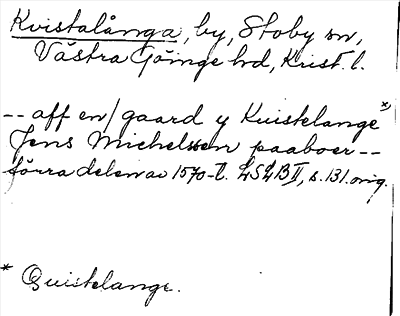 Kvistalånga, by, Stoby sn,
Västra Göinge hd, Krist. l.
-- aff en / gaard y Kuistelange*
Jens Michelssen paaboer --
förra delen av 1570-t. LSLB II, s. 131. orig.
* Quistelange.